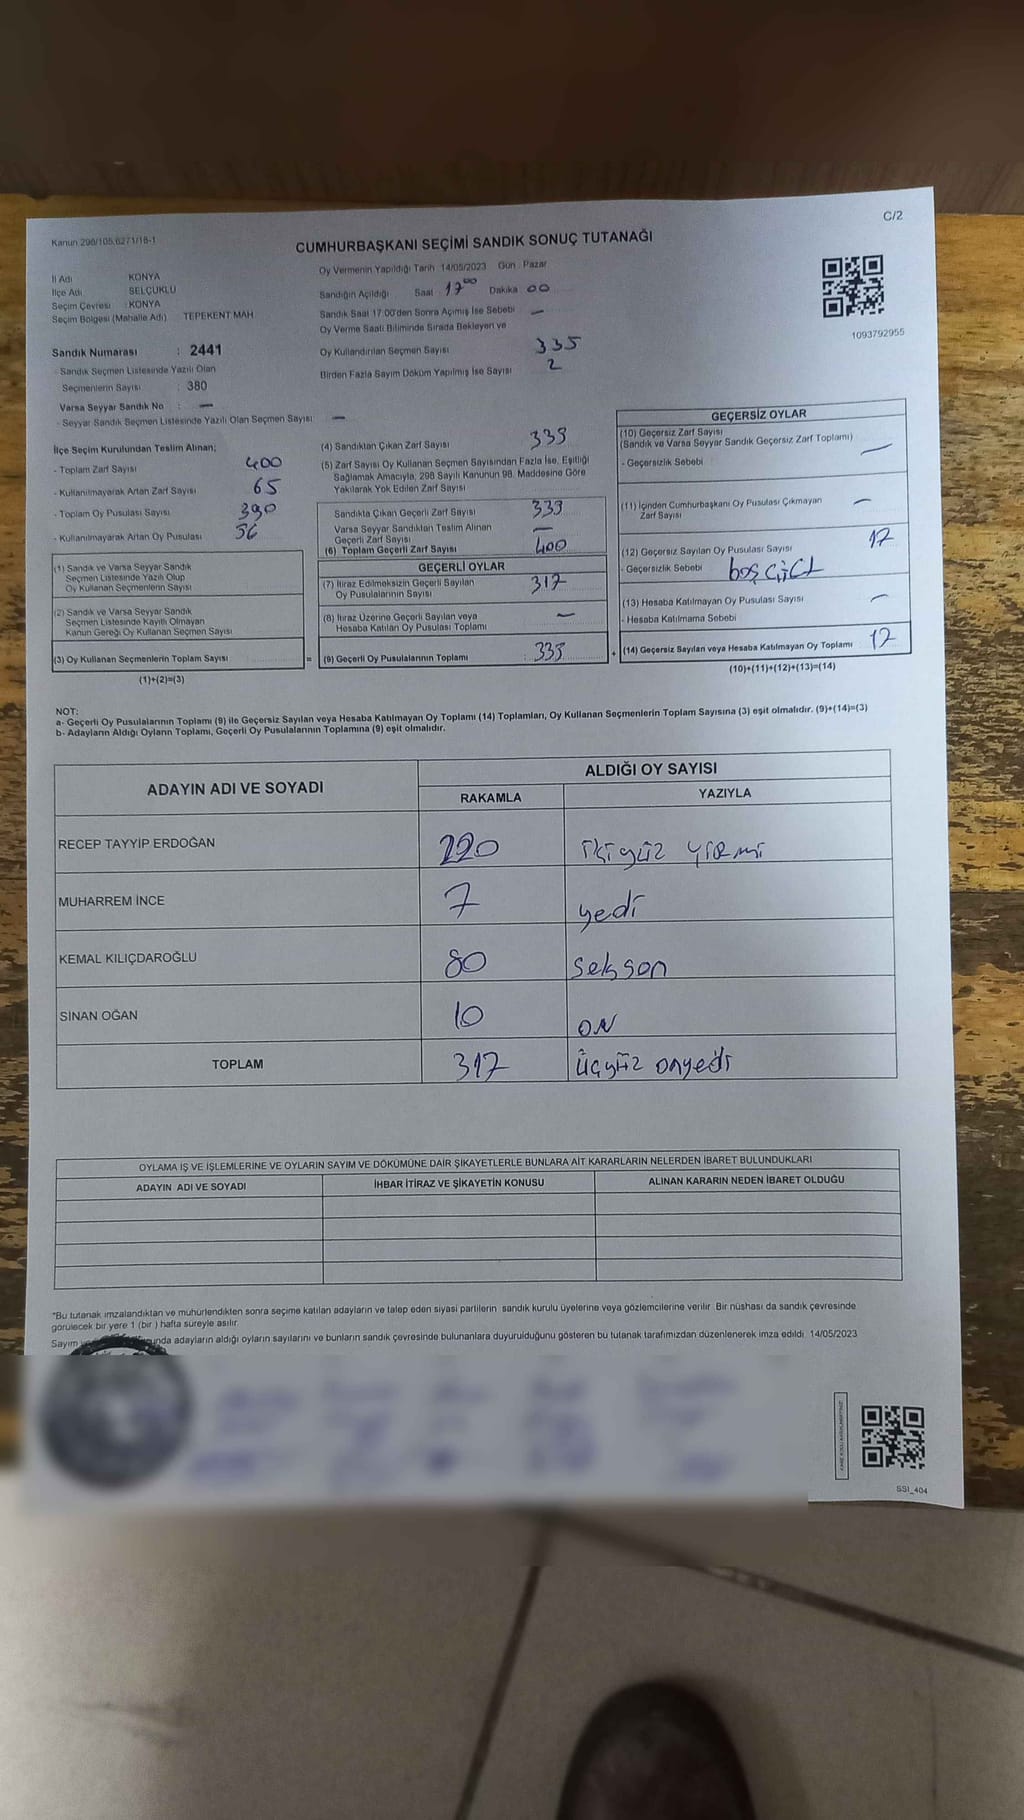 C/2
Kanun 298/105,6271/16-1
CUMHURBAŞKANI SEÇİMİ SANDIK SONUÇ TUTANAĞI
İl Adı KONYA
İlçe Adı SELÇUKLU
Seçim Çevresi KONYA
Seçim Bölgesi (Mahalle Adı) TEPEKENT MAH
Sandık Numarası : 2441
- Sandık Seçmen Listesinde Yazılı Olan
Seçmenlerin Sayısı : 380
Varsa Seyyar Sandık No : —
- Seyyar Sandık Seçmen Listesinde Yazılı Olan Seçmen Sayısı: —
Oy Vermenin Yapıldığı Tarih 14/05/2023 Gün : Pazar
Sandığın Açıldığı Saat 17 00 Dakika 00
Sandık Saat 17.00'den Sonra Açılmış İse Sebebi —
Oy Verme Saati Bitiminde Sırada Bekleyen ve
Oy Kullandırılan Seçmen Sayısı 335
Birden Fazla Sayım Döküm Yapılmış İse Sayısı 2
1093792955
İlçe Seçim Kurulundan Teslim Alınan;
- Toplam Zarf Sayısı 400
- Kullanılmayarak Artan Zarf Sayısı 65
- Toplam Oy Pusulası Sayısı 390
- Kullanılmayarak Artan Oy Pusulası 56
(1) Sandık ve Varsa Seyyar Sandık
Seçmen Listesinde Yazılı Olup
Oy Kullanan Seçmenlerin Sayısı
(2) Sandık ve Varsa Seyyar Sandık
Seçmen Listesinde Kayıtlı Olmayan
Kanun Gereği Oy Kullanan Seçmen Sayısı
(3) Oy Kullanan Seçmenlerin Toplam Sayısı
(1)+(2)=(3)
(4) Sandıktan Çıkan Zarf Sayısı 333
(5) Zarf Sayısı Oy Kullanan Seçmen Sayısından Fazla İse, Eşitliği
Sağlamak Amacıyla, 298 Sayılı Kanunun 98. Maddesine Göre
Yakılarak Yok Edilen Zarf Sayısı
Sandıkta Çıkan Geçerli Zarf Sayısı 333
Varsa Seyyar Sandıktan Teslim Alınan
Geçerli Zarf Sayısı —
(6) Toplam Geçerli Zarf Sayısı 400
GEÇERLİ OYLAR
(7) İtiraz Edilmeksizin Geçerli Sayılan
Oy Pusulalarının Sayısı 317
(8) İtiraz Üzerine Geçerli Sayılan veya
Hesaba Katılan Oy Pusulası Toplamı —
= (9) Geçerli Oy Pusulalarının Toplamı : 333
GEÇERSİZ OYLAR
(10) Geçersiz Zarf Sayısı
(Sandık ve Varsa Seyyar Sandık Geçersiz Zarf Toplamı) —
- Geçersizlik Sebebi
(11) İçinden Cumhurbaşkanı Oy Pusulası Çıkmayan
Zarf Sayısı —
(12) Geçersiz Sayılan Oy Pusulası Sayısı 17
- Geçersizlik Sebebi boş çift
(13) Hesaba Katılmayan Oy Pusulası Sayısı —
- Hesaba Katılmama Sebebi
+ (14) Geçersiz Sayılan veya Hesaba Katılmayan Oy Toplamı 17
(10)+(11)+(12)+(13)=(14)
NOT:
a- Geçerli Oy Pusulalarının Toplamı (9) ile Geçersiz Sayılan veya Hesaba Katılmayan Oy Toplamı (14) Toplamları, Oy Kullanan Seçmenlerin Toplam Sayısına (3) eşit olmalıdır. (9)+(14)=(3)
b- Adayların Aldığı Oyların Toplamı, Geçerli Oy Pusulalarının Toplamına (9) eşit olmalıdır.
ADAYIN ADI VE SOYADI ALDIĞI OY SAYISI
RAKAMLA YAZIYLA
RECEP TAYYİP ERDOĞAN 220 ikiyüz yirmi
MUHARREM İNCE 7 yedi
KEMAL KILIÇDAROĞLU 80 seksen
SİNAN OĞAN 10 ON
TOPLAM 317 üçyüz onyedi
OYLAMA İŞ VE İŞLEMLERİNE VE OYLARIN SAYIM VE DÖKÜMÜNE DAİR ŞİKAYETLERLE BUNLARA AİT KARARLARIN NELERDEN İBARET BULUNDUKLARI
ADAYIN ADI VE SOYADI İHBAR İTİRAZ VE ŞİKAYETİN KONUSU ALINAN KARARIN NEDEN İBARET OLDUĞU
*Bu tutanak imzalandıktan ve mühürlendikten sonra seçime katılan adayların ve talep eden siyasi partilerin sandık kurulu üyelerine veya gözlemcilerine verilir. Bir nüshası da sandık çevresinde
görülecek bir yere 1 (bir) hafta süreyle asılır.
Sayım adayların aldığı oyların sayılarını ve bunların sandık çevresinde bulunanlara duyurulduğunu gösteren bu tutanak tarafımızdan düzenlenerek imza edildi 14/05/2023
SSI_404